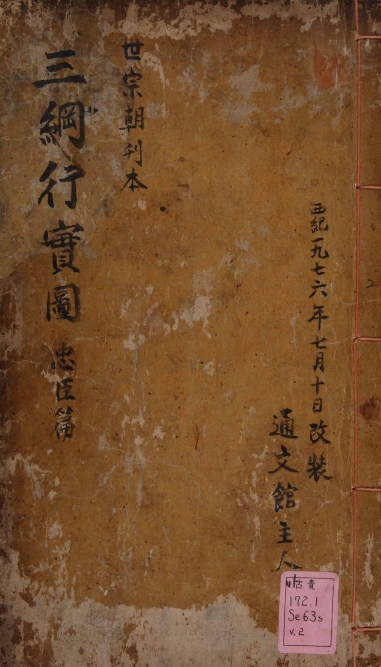 三綱行實圖 忠臣篇
世宗朝刊本
西紀一九七六年七月十日改裝
通文館主人
古貴
172.1
Se63s
v.2